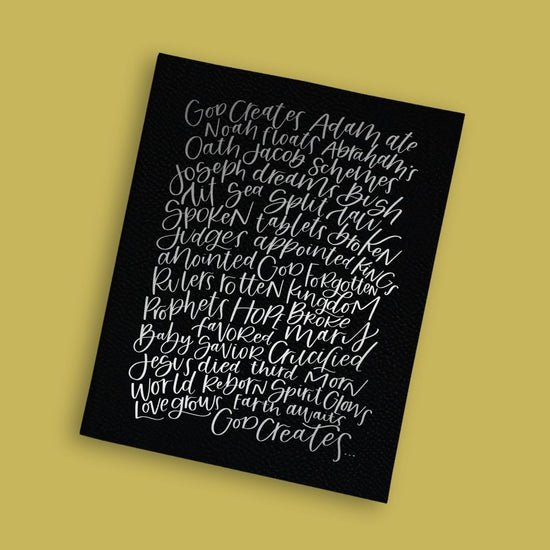 God Creates Adam ate
Noah floats Abraham's
Oath Jacob Schemes
Joseph dreams Bush
Lit Sea Split Law
Spoken tablets broken
Judges appointed Kings
anointed God Forgotten
Rulers rotten Kingdom
Broke
Prophets Hope Mary
favored
Baby Savior Crucified
Jesus died third Morn
World Reborn Spirit Glows
Love grows Earth awaits
God Creates...